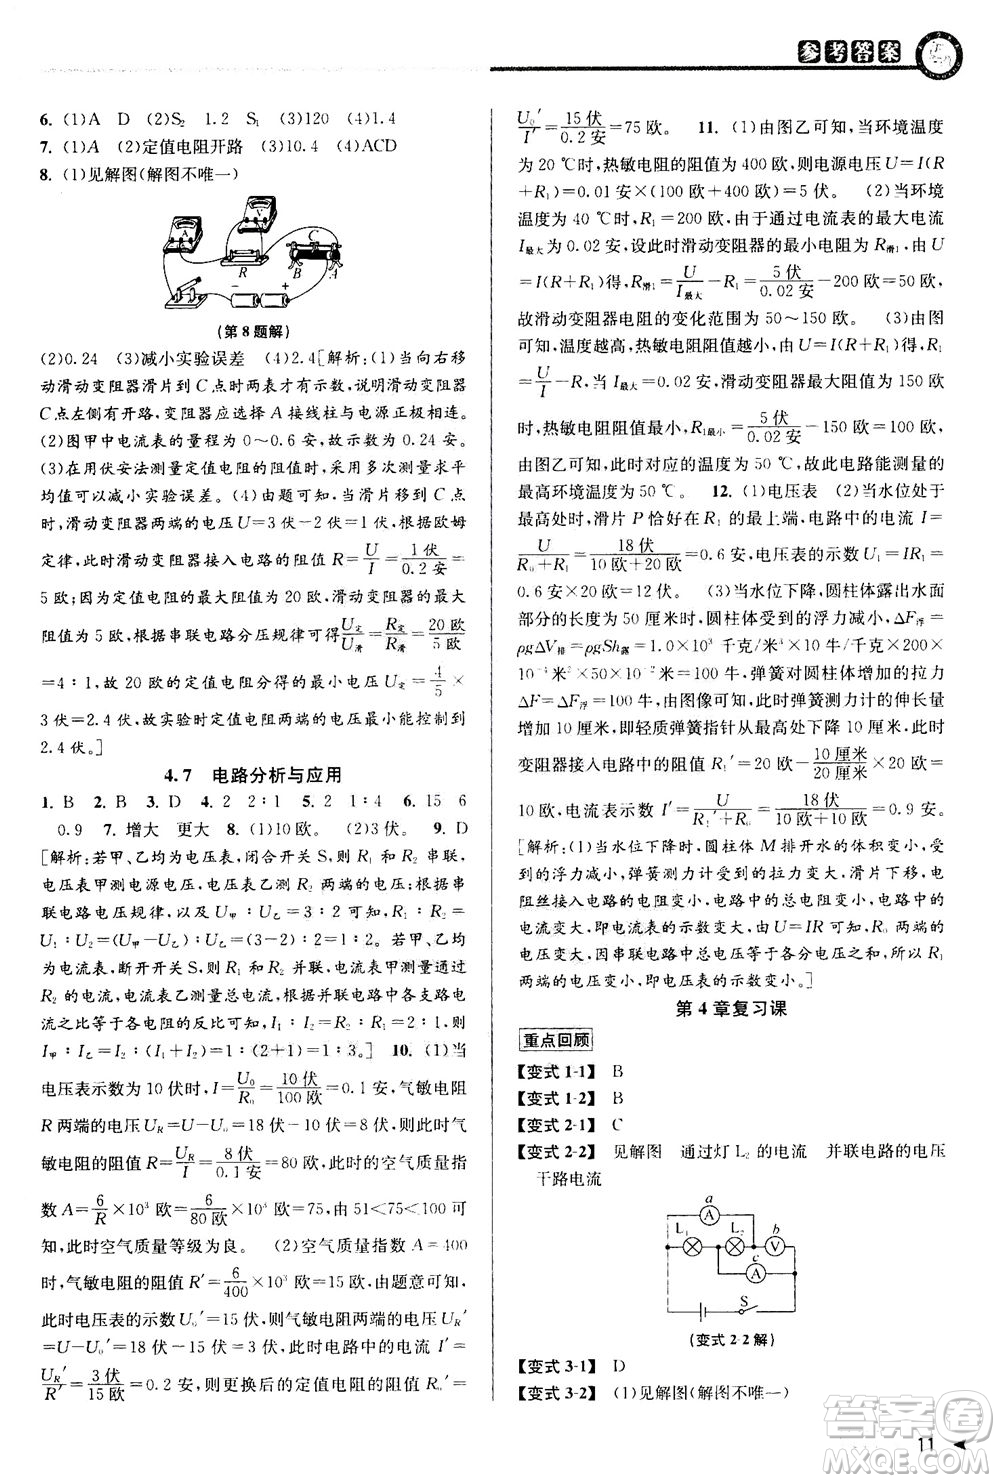 参考答案
6. (1)A D (2)S₂ 1.2 S₁ (3)120 (4)1.4
7. (1)A (2)定值电阻开路 (3)10.4 (4)ACD
8. (1)见解图(解图不唯一)
A V R B C A − +
(第 8 题解)
(2)0.24 (3)减小实验误差 (4)2.4[解析:(1)当向右移
动滑动变阻器滑片到 C 点时两表才有示数,说明滑动变阻器
C 点左侧有开路,变阻器应选择 A 接线柱与电源正极相连。
(2)图甲中电流表的量程为 0～0.6 安,故示数为 0.24 安。
(3)在用伏安法测量定值电阻的阻值时,采用多次测量求平
均值可以减小实验误差。(4)由题可知,当滑片移到 C 点
时,滑动变阻器两端的电压 U=3 伏−2 伏=1 伏,根据欧姆
定律,此时滑动变阻器接入电路的阻值 R=U/I=1伏/0.2安=
5 欧;因为定值电阻的最大阻值为 20 欧,滑动变阻器的最大
阻值为 5 欧,根据串联电路分压规律可得U定/U滑=R定/R滑=20 欧/5 欧
=4∶1,故 20 欧的定值电阻分得的最小电压 U定=4/5×
3 伏=2.4 伏,故实验时定值电阻两端的电压最小能控制到
2.4 伏。]
4.7 电路分析与应用
1. B 2. B 3. D 4. 2 2∶1 5. 2 1∶4 6. 15 6
0.9 7. 增大 更大 8. (1)10欧。 (2)3伏。 9. D
[解析:若甲、乙均为电压表,闭合开关 S,则 R₁ 和 R₂ 串联,
电压表甲测电源电压,电压表乙测 R₂ 两端的电压,根据串
联电路电压规律,对应的 U甲∶U乙=3∶2 可知,R₁∶R₂=
U₁∶U₂=(U甲−U乙)∶U乙=(3−2)∶2=1∶2。若甲、乙均
为电流表,断开开关 S,则 R₁ 和 R₂ 并联,电流表甲测通过
R₂ 的电流,电流表乙测量总电流,根据并联电路中各支路电
流与对应的电阻成反比可知,I₁∶I₂=R₂∶R₁=2∶1,则
I甲∶I乙=I₂∶(I₁+I₂)=1∶(2+1)=1∶3。] 10. (1)当
电压表示数为 10 伏时,I=U₀/R₀=10 伏/100 欧=0.1 安,气敏电阻
R 两端的电压 U_R=U−U₀=18 伏−10 伏=8 伏,则此时气
敏电阻的阻值 R=U_R/I=8 伏/0.1 安=80 欧,此时空气质量指
数 A=6/R×10³ 欧=6/80 欧×10³ 欧=75,由 51<75<100 可
知,此时空气质量等级为良。 (2)空气质量指数 A=400
时,气敏电阻的阻值 R′=6/400×10³ 欧=15 欧,由题意可知,此
时电压表的示数 U₀′=15 伏,则气敏电阻两端的电压 U_R′
=U−U₀′=18 伏−15 伏=3 伏,此时电路中的电流 I′=
U_R′/R′=3 伏/15 欧=0.2 安,则更换后的定值电阻阻值 R₀′=
U₀′/I′=15 伏/0.2 安=75 欧。 11. (1)由图乙可知,当环境温度
为 20 ℃时,热敏电阻的阻值为 400 欧,则电源电压 U=I(R
+R₁)=0.01 安×(100 欧+400 欧)=5 伏。 (2)当环境
温度为 40 ℃时,R₁=200 欧,由于通过电流表的最大电流
I最大为 0.02 安,设此时滑动变阻器的最小电阻为 R滑1,由 U
=I(R+R₁)得,R滑1=U/I最大−R₁=5 伏/0.02 安−200 欧=50 欧,
故滑动变阻器电阻的变化范围为 50～100 欧。 (3)由图
可知,温度越高,热敏电阻阻值越小,由 U=I(R+R₁)得,R₁=
U/I−R,当 I最大=0.02 安,滑动变阻器最大阻值为 150 欧
时,热敏电阻阻值最小,R1最小=5 伏/0.02 安−150 欧=100 欧,
由图乙可知,此时对应的温度为 50 ℃,故此电路能测量的
最高环境温度为 50 ℃。 12. (1)电压表 (2)当水位处于
最高位置时,滑片 P 恰好在 R₁ 的最上端,电路中的电流 I=
U/(R₀+R₁)=18 伏/(10 欧+20 欧)=0.6 安,电压表的示数 U₁=IR₁=
0.6 安×20 欧=12 伏。 (3)当水位下降,圆柱体露出水面
部分的长度为 50 厘米时,圆柱体受到的浮力减小量 ΔF浮=
ρgΔV排=ρgSh露=1.0×10³ 千克/米³×10 牛/千克×200×
10⁻⁴米²×50×10⁻²米=100 牛,弹簧对圆柱体增大的拉力
ΔF=ΔF浮=100 牛,由图像可知,弹簧测力计的伸长量
增加 10 厘米,即轻质弹簧指针从最高处下降 10 厘米,则
变阻器接入电路中的电阻 R₁′=20 欧−10 厘米/20 厘米×20 欧=
10 欧,电流表示数 I′=U/(R₁′+R₀)=18 伏/(10 欧+10 欧)=0.9 安。
[解析:(1)当水位下降时,圆柱体 M 排开水的体积变小,受
到的浮力变小,弹簧测力计受到的拉力变大,滑片下移,电
阻丝接入电路的电阻变小,电路中的总电阻变小,电路中的
电流变大,即电流表的示数变大,由 U=IR 可知,R₀ 两端的
电压变大,因串联电路中总电压等于各分电压之和,所以 R₁
两端的电压变小,即电压表的示数变小。]
第 4 章复习课
重点回顾
【变式 1-1】 B
【变式 1-2】 B
【变式 2-1】 C
【变式 2-2】 见解图 通过灯 L₂ 的电流 并联电路的电压
干路电流
a A L₁ L₂ b V c A S
(变式 2-2 解)
【变式 3-1】 D
【变式 3-2】 (1)见解图(解图不唯一)
答案圈
MXQE.COM
11